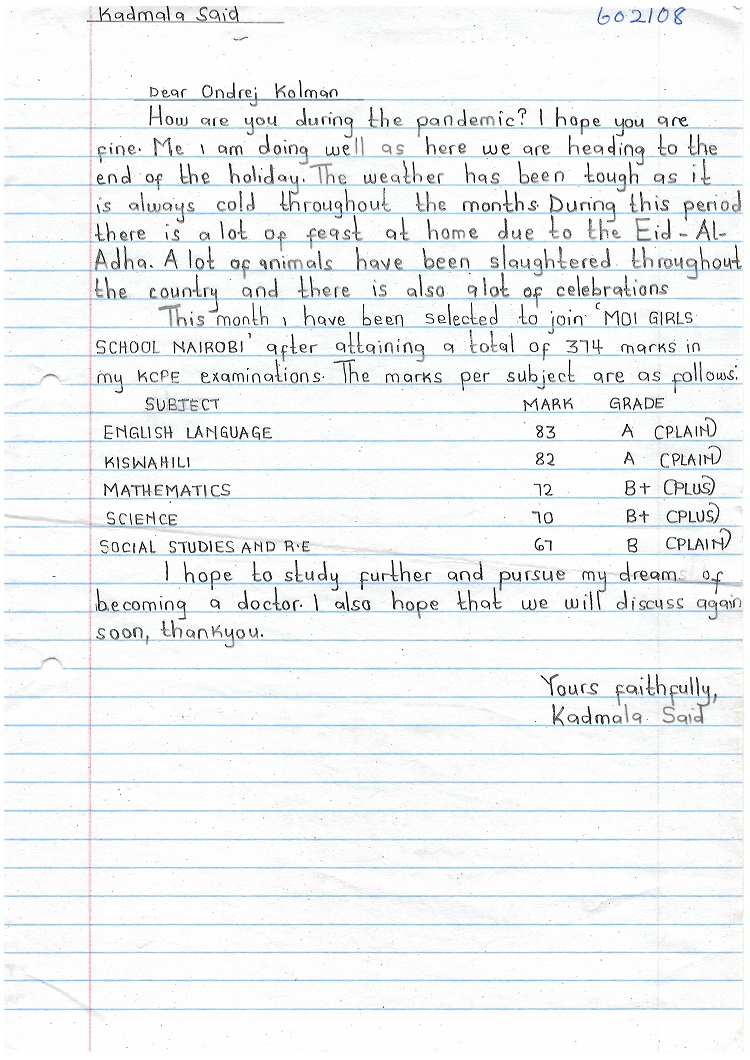 Kadmala Said 602108
Dear Ondrej Kolman
How are you during the pandemic? I hope you are
fine. Me I am doing well as here we are heading to the
end of the holiday. The weather has been tough as it
is always cold throughout the months. During this period
there is a lot of feast at home due to the Eid-Al-
Adha. A lot of animals have been slaughtered throughout
the country and there is also alot of celebrations
This month I have been selected to join 'MOI GIRLS
SCHOOL NAIROBI' after attaining a total of 374 marks in
my KCPE examinations. The marks per subject are as follows:
SUBJECT MARK GRADE
ENGLISH LANGUAGE 83 A (PLAIN)
KISWAHILI 82 A (PLAIN)
MATHEMATICS 72 B+ (PLUS)
SCIENCE 70 B+ (PLUS)
SOCIAL STUDIES AND R.E 67 B (PLAIN)
I hope to study further and pursue my dreams of
becoming a doctor. I also hope that we will discuss again
soon, thankyou.
Yours faithfully,
Kadmala Said